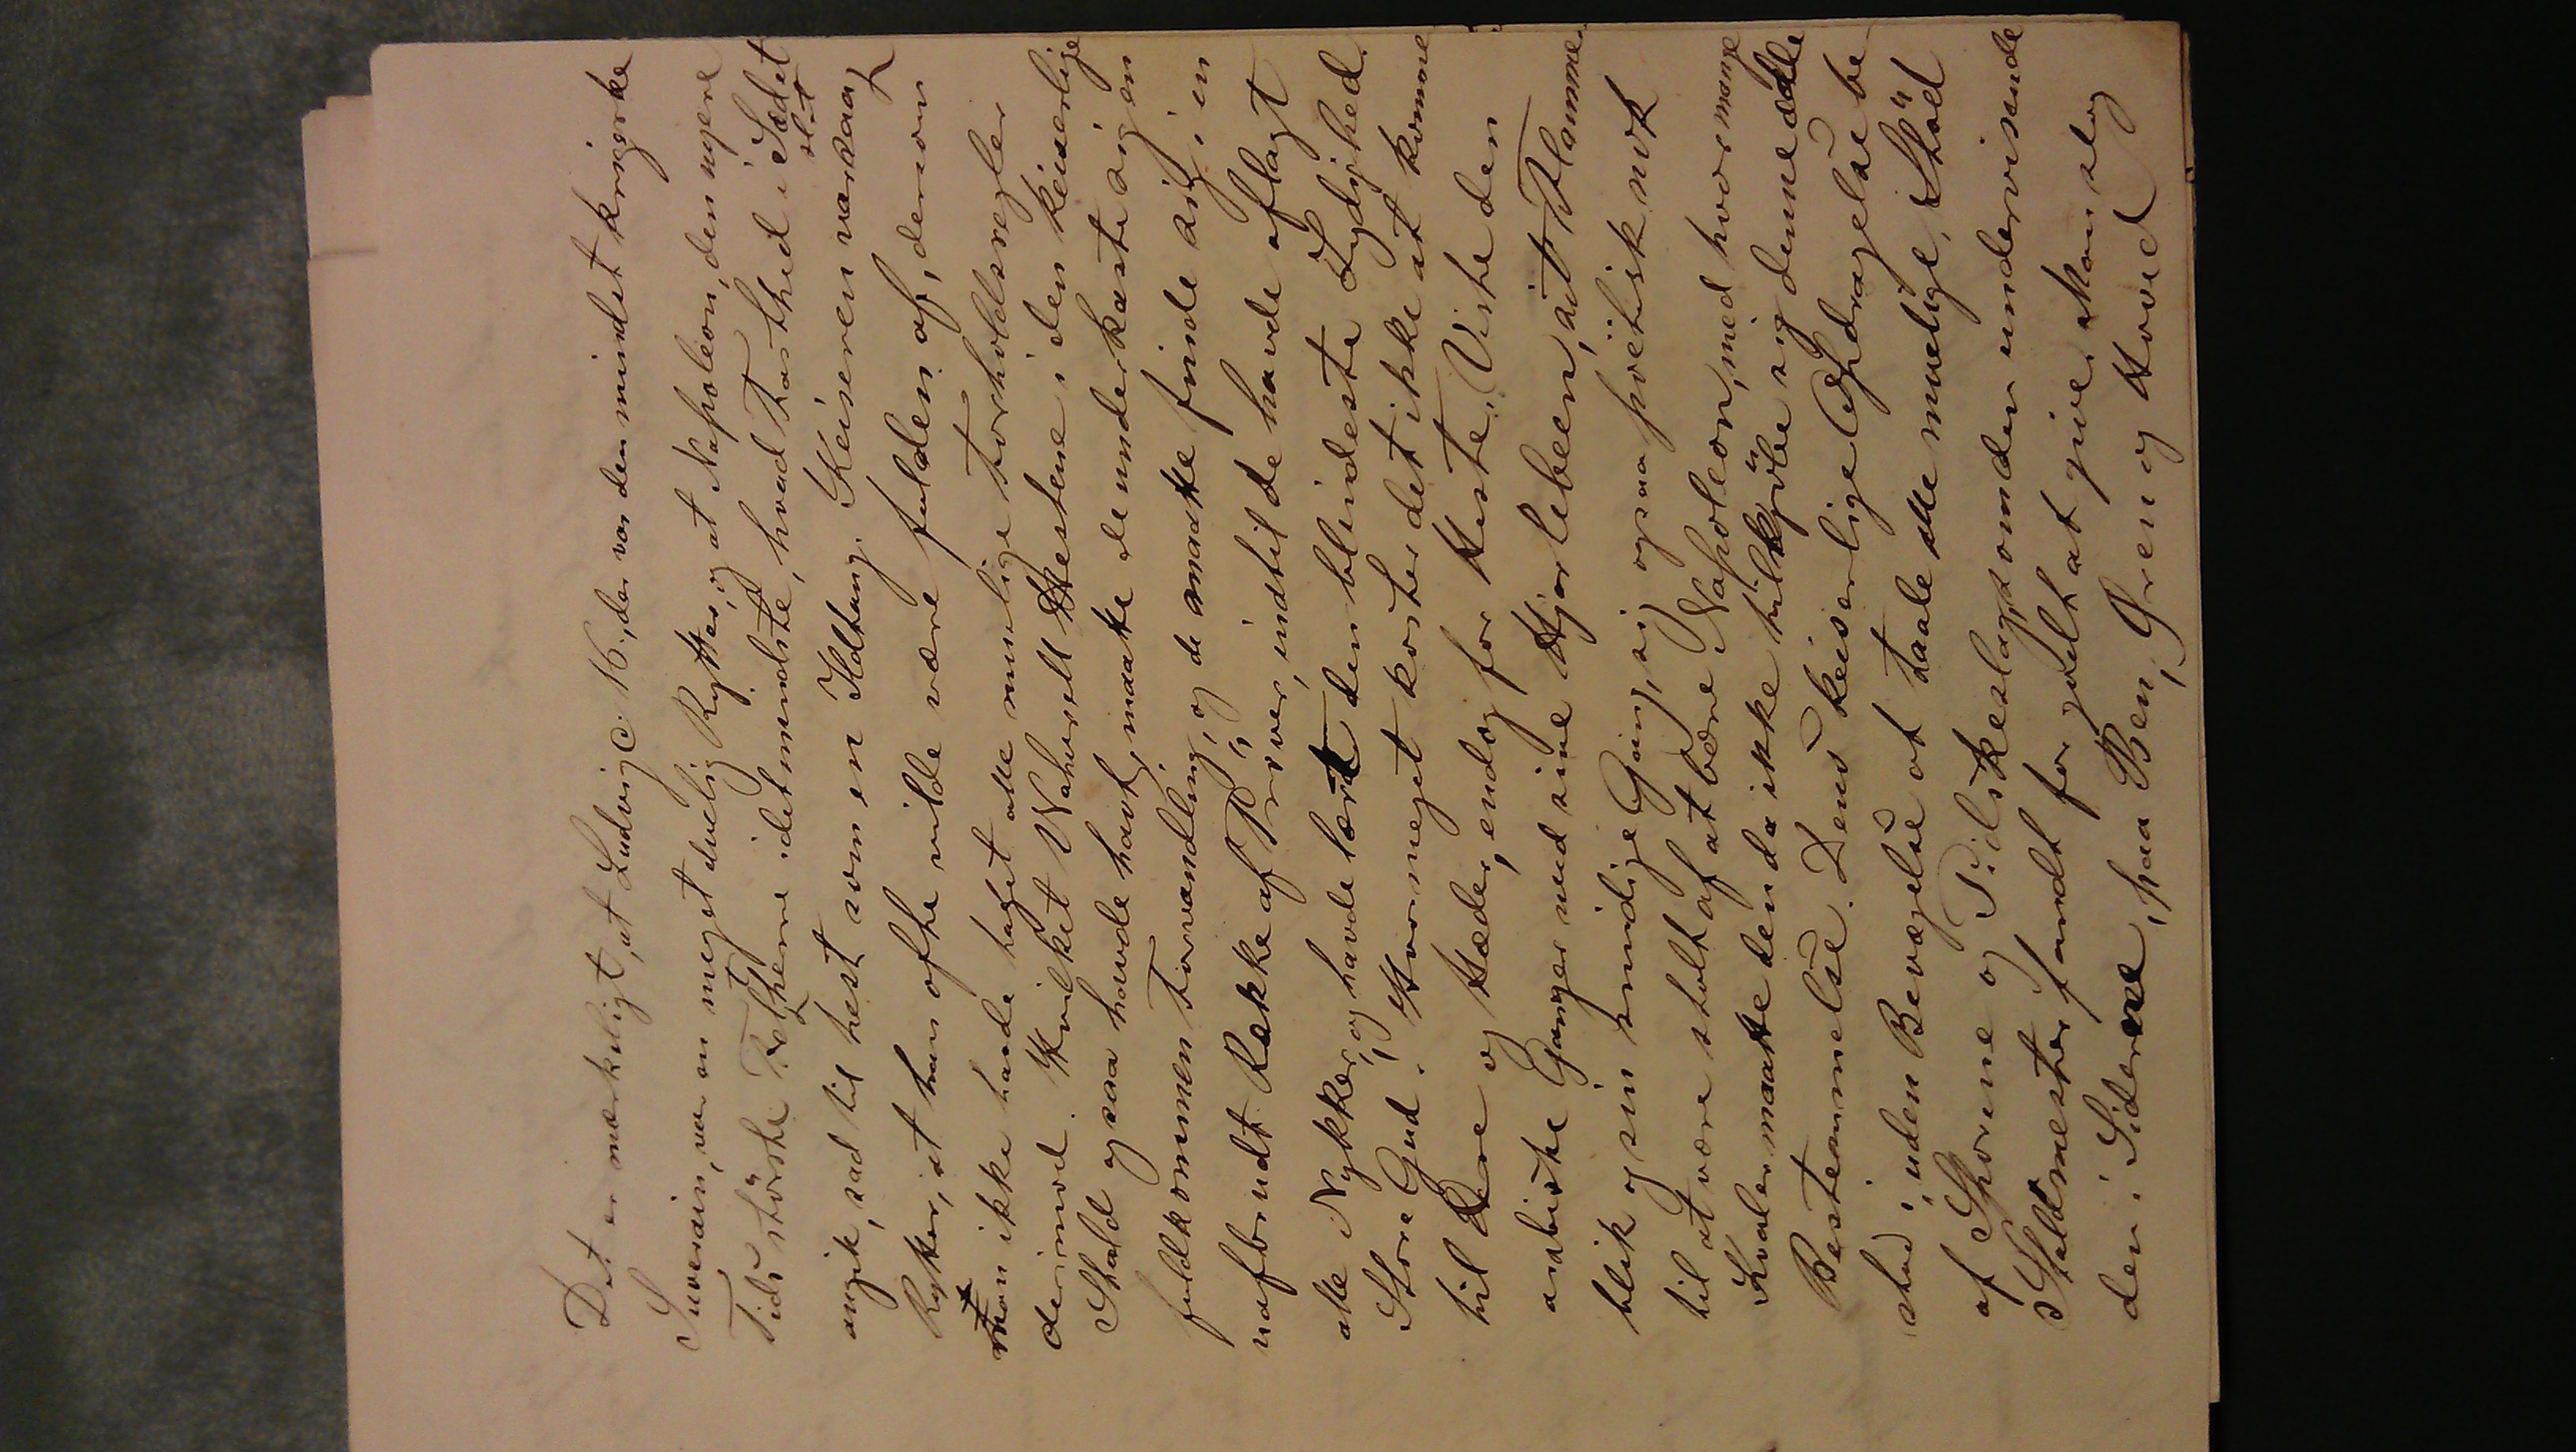 Det er mærkeligt, at Ludvig d. 16., der var den mindst krigerske
Suverain, var en meget duelig Rytter, og at Napoleon, den nyere
Tids største Feltherre idetmindste, hvad Fasthed i Sædet
angik, sad til hest som en Ildtang. Keiseren var saa slet
Rytter, at han ofte vilde være falden af, dersom
man ikke havde taget alle muelige Forholdsregler
derimod. Hvilket Naturell Hestene i den keiserlige
Stald ogsaa havde havt, maatte de underkaste sig en
fuldkommen Forvandling, og de maatte finde sig i en
uafbrudt Række af Prøver, indtil de havde aflagt
alle Nykker, og havde lært den blindeste Lydighed.
Store Gud! Hvor meget koster det ikke at komme
til Ære og Hæder, endog for Heste. Viste den
arabiske Ganger med sine Hjorteben, sit Flamme-
blik og sin smidige Gang, sig ogsaa poëtisk nok
til at være stolt af at bære Napoleon, med hvor mange
Kvaler maatte den da ikke tilkjøbe sig denne ædle
Bestemmelse. Dens keiserlige Opdragelse be-
stod i, uden Bevægelse at taale alle muelige, Stød
af Sporene og Pidskeslag, som den undervisende
Staldmester fandt for godt at give. Man slog
den i Siderne, paa Ben, Øren og Hoved